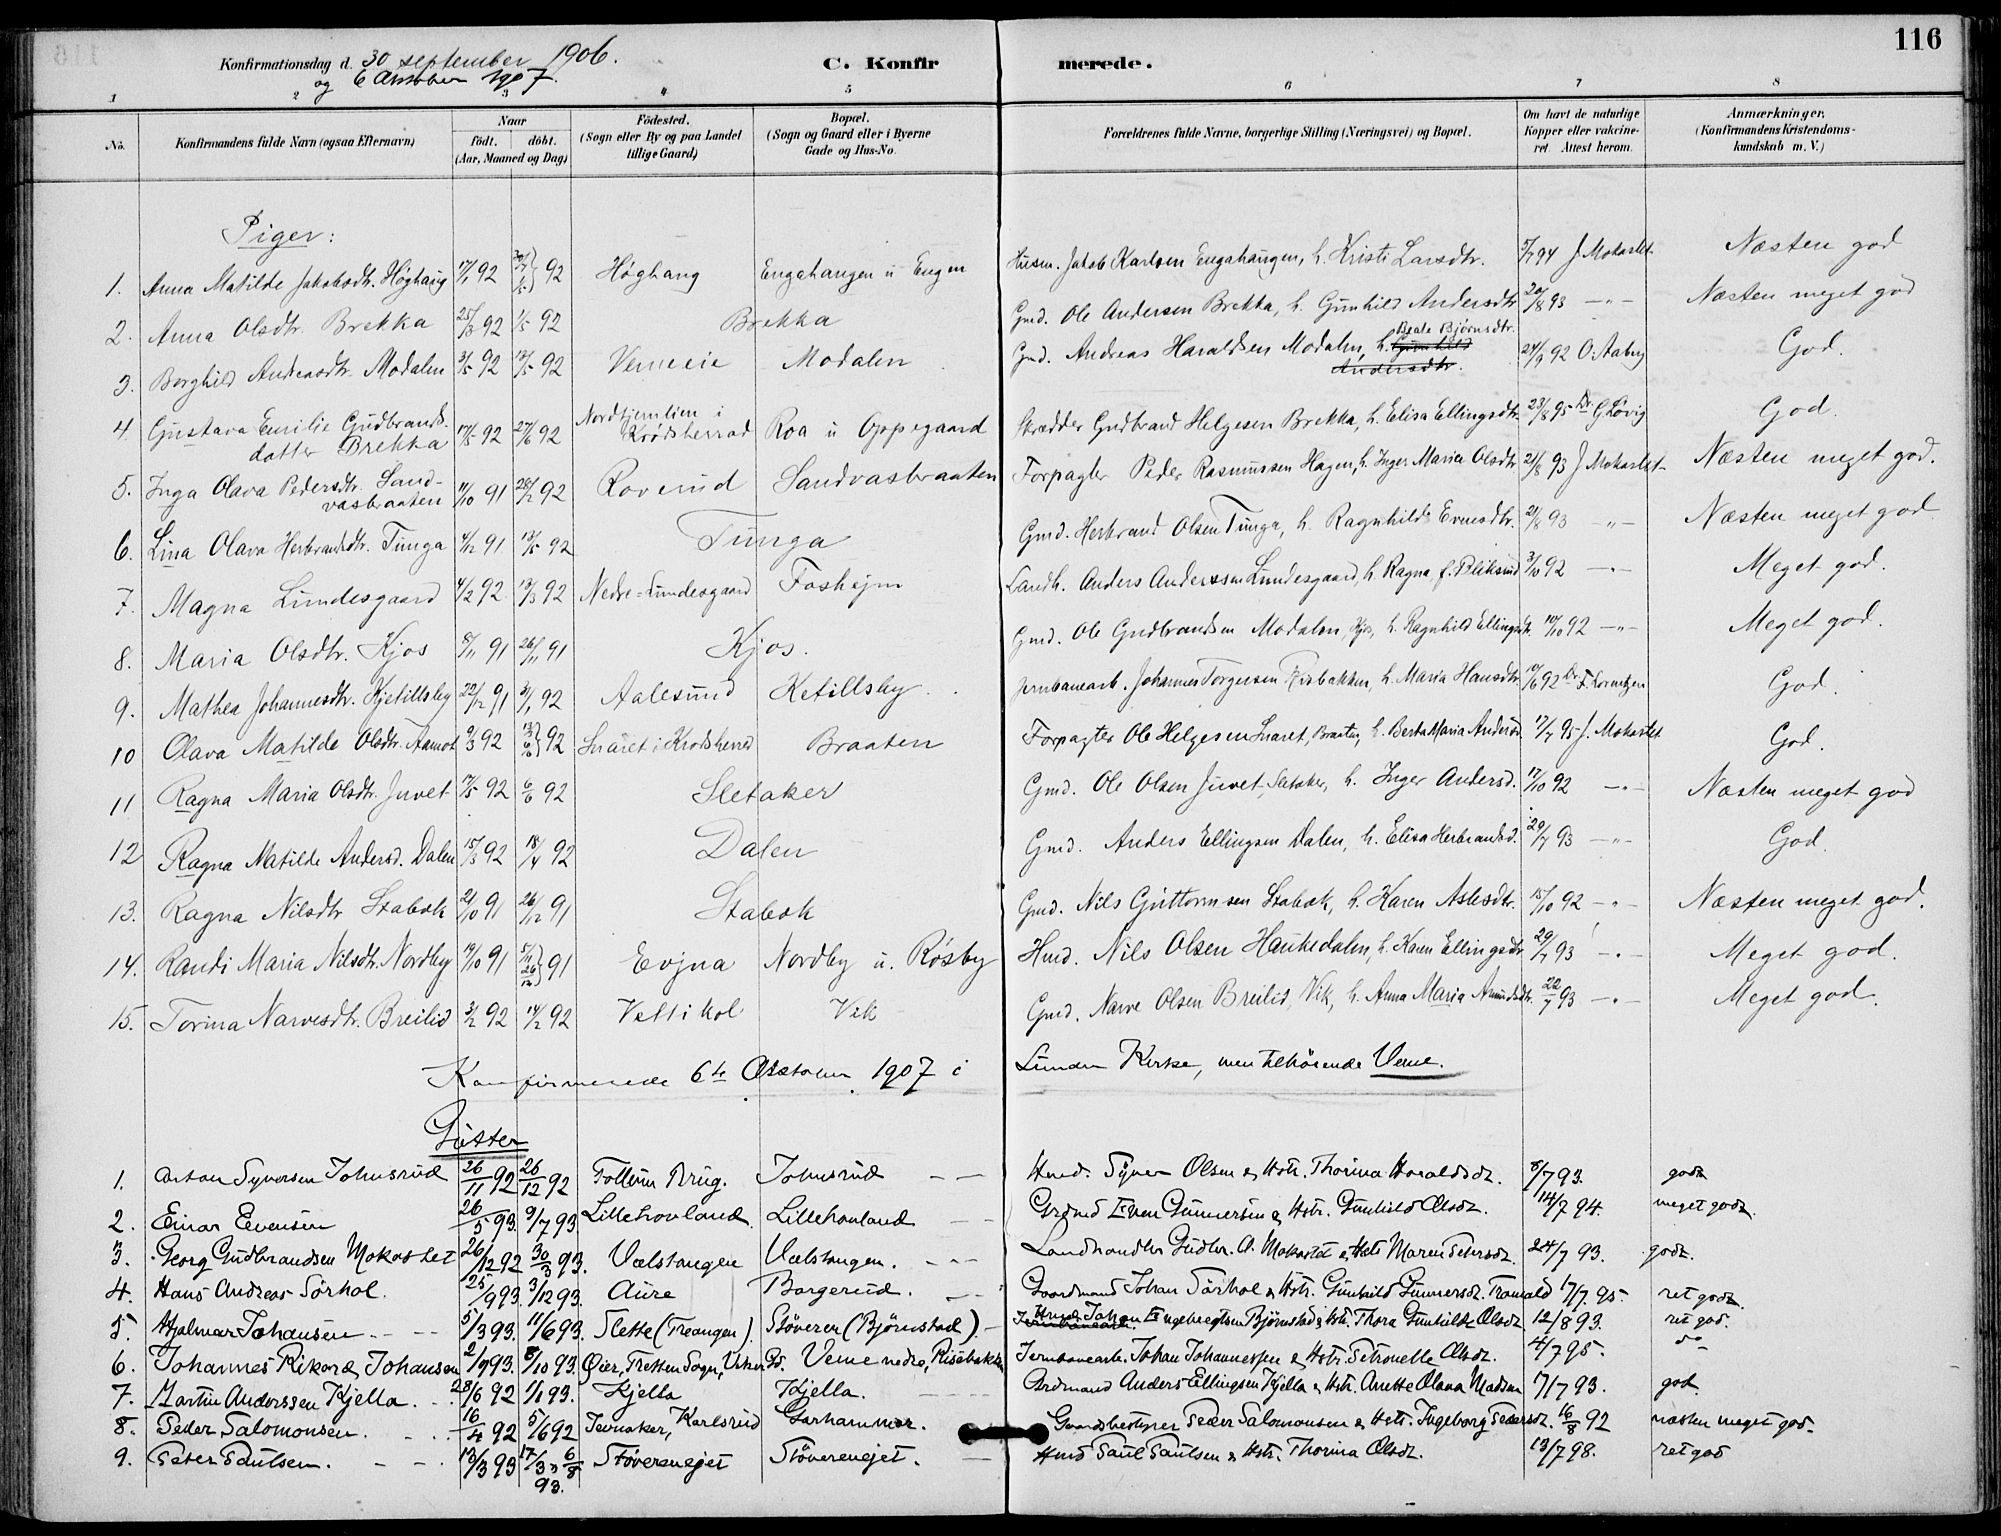 116
Konfirmationsdag d. 30 september 1906.
og 6 Oktober 1907.
C. Konfirmerede.
1 2 3 4 5 6 7 8
No. Konfirmandens fulde Navn (ogsaa Efternavn) Naar födt. döbt. (Aar, Maaned og Dag) Födested. (Sogn eller By og paa Landet tillige Gaard) Bopæl. (Sogn og Gaard eller i Byerne Gade og Hus-No. Forældrenes fulde Navne, borgerlige Stilling (Næringsvei) og Bopæl. Om havt de naturlige Kopper eller vakcineret. Attest herom. Anmærkninger. (Konfirmandens Kristendomskundskab m. V.)
Piger:
1. Anna Matilde Jakobsdtr. Høghaug 17/1 92 92 Høghaug Engahaugen u Engen Husm. Jakob Karlsen Engahaugen, h. Kristi Larsdtr. 5/7 94 J. Mokastet Næsten god
2. Anna Olsdtr. Brekka 25/3 92 1/5 92 Brekka Gmd. Ole Andersen Brekka, h. Gunhild Andersdtr 20/8 93 –"– Næsten meget god
3. Borghild Andreasdtr. Modalen 3/5 92 15/5 92 Vemeie Modalen Gmd. Andreas Haraldsen Modalen, h. Gunhild Andersdtr. Beate Bjørnsdtr. 24/9 92 O. Aaberg God.
4. Gustava Emilie Gudbrandsdatter Brekka 17/5 92 27/6 92 Nordtjernlien i Krødsherrad Roa u Oppegaard Skrædder Gudbrand Helgesen Brekka, h. Elisa Ellingsdtr. 23/8 95 Dr. G. Løvig God.
5. Inga Olava Pedersdtr. Sandvasbraaten 11/10 91 28/2 92 Roverud Sandvasbraaten Forpagter Peder Rasmussen Hagen, h. Inger Maria Olsdtr 21/8 93 J Mokastet Næsten meget god.
6. Lina Olava Herbrandsdtr. Tunga 4/12 91 15/5 92 Tunga Gmd. Herbrand Olsen Tunga, h. Ragnhild Evensdtr. 21/8 93 –"– Næsten meget god
7. Magna Lundesgaard 4/2 92 13/3 92 Nedre-Lundesgaard Foshejm Landh. Anders Anderssen Lundesgaard, h. Ragna f. Bliksrud 3/10 92 –"– Meget god.
8. Maria Olsdtr. Kjos 8/11 91 26/11 91 Kjos. Gmd. Ole Gudbrandsen Modalen, Kjos, h. Ragnhild Ellingsdtr. 10/10 92 –"– Meget god.
9. Mathea Johannesdtr. Kjetillsby 22/12 91 31/1 92 Aalesund Ketillsby Jernbanearb. Johannes Torgersen Risbakken, h. Maria Hansdtr. 10/6 92 Dr. F. Lorentzen God.
10 Olava Matilde Olsdtr. Aamot 9/3 92 92 Snaret i Krødsherred Braaten Forpagter Ole Helgesen Snaret, Braaten, h. Berta Maria Andersd. 17/7 95 J. Mokastet God.
11 Ragna Maria Olsdtr. Juvet 17/5 92 6/6 92 Sletaker Gmd. Ole Olsen Juvet, Sletaker, h. Inger Andersd. 17/10 92 –"– Næsten meget god
12 Ragna Matilde Andersd. Dalen 15/3 92 18/4 92 Dalen Gmd. Anders Ellingsen Dalen, h. Elisa Herbrandsd. 20/7 93 –"– God.
13. Ragna Nilsdtr Stabæk 21/10 91 26/12 91 Stabæk Gmd. Nils Guttormsen Stabæk, h. Karen Aslesdtr. 15/10 92 –"– Næsten meget god.
14. Randi Maria Nilsdtr. Nordby 19/10 91 91 Evjua Nordby u. Røsby Hmd. Nils Olsen Haukedalen, h. Karen Ellingsdtr 29/7 93 –"– Meget god.
15. Torina Narvesdtr. Breilid 3/2 92 14/2 92 Veltikol Vik Gmd. Narve Olsen Breilid, Vik, h. Anna Maria Amundsdtr. 22/7 93 –"– Meget god.
Konfirmerede 6te Oktober 1907 i Lunder Kirke, men tilhörende Veme.
Gutter
1. Anton Syversen Tohnsrud 26/11 92 26/12 92 Follum Brug. Tohnsrud Hmd. Syver Olsen & Hstr. Thorina Haraldsdt. 8/7 93. godt
2. Einar Evensen 26/5 93. 9/7 93 Lillehovland. Lillehovland Grdmd Even Gunnersen & Hstr. Gunhild Olsdt. 14/7 94. meget godt.
3. Georg Gudbrandsen Mokastet 26/12 92 30/3 93. Vælstangen Vælstangen. Landhandler Gudbr. A. Mokastet & Hstr Maren Petersdt. 24/7 93. godt.
4. Hans Andreas Sörhol. 25/9 93. 3/12 93. Aure Borgerud. Gaardmand Johan Sörhol & Hstr. Gunhild Gunnersdt. Tronrud 17/7. 95. ret godt.
5. Hjalmar Johansen 5/3 93. 11/6 93. Slette (Treangen). Stöveren (Björnstad) Jernbanearb. Hmd. Johan Engebregtsen Björnstad & Hstr. Thora Gunhilde Olsdt 12/8 93. ret god.
6. Johannes Rikard Johansen 2/9 93. 8/10 93. Öier, Tretten Sogn, Veme nedre, Risebakken Jernbanearb. Johan Johannessen & Hstr. Petronelle Olsdt. 4/7 95. do
7. Martin Anderssen Kjella 28/6 92 1/1 93. Kjella Kjella. Grdmand Anders Ellingsen Kjella & Hstr. Anette Olava Madsen 17/7 93. god.
8. Peder Salomonsen. 16/4 92 5/6 92 Jevnaker, Karlsrud Garhammer. Gaardsbestyrer Peder Salomonsen & Hstr. Ingeborg Pedersdt. 16/8 92 næsten meget god
9. Peter Paulsen. 13/3 93 17/3 & 6/8 93. Stöverenejet Stöverenejet. Hmd Paul Paulsen & Hstr. Thorina Olsdt. 13/7 98. ret god